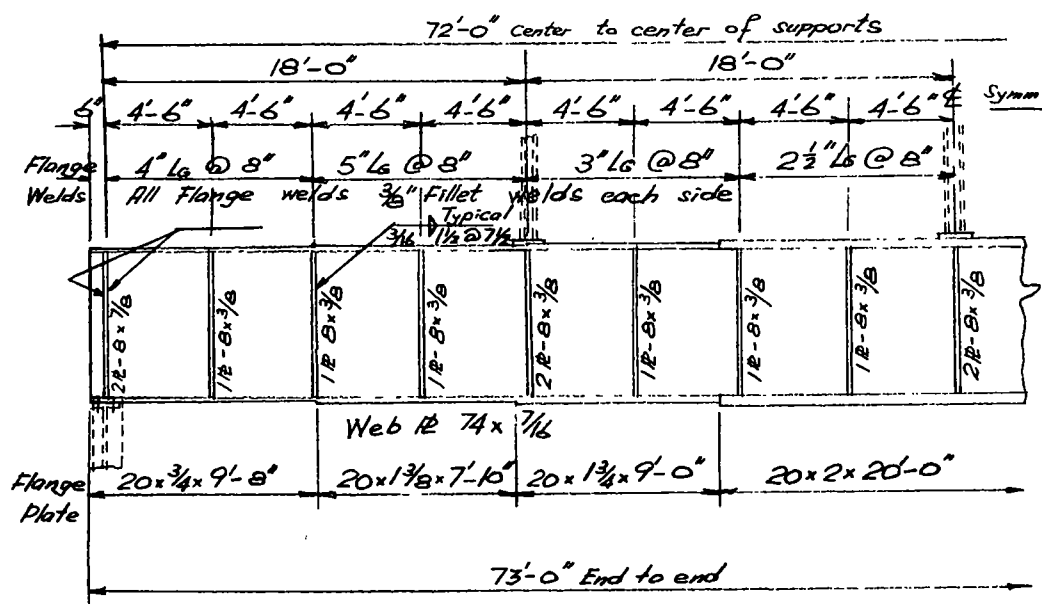 72'-0" Center to center of supports
18'-0" 18'-0"
6" 4'-6" 4'-6" 4'-6" 4'-6" 4'-6" 4'-6" 4'-6" 4'-6" ℄ Symm
Flange Welds
4" LG @ 8" 5" LG @ 8" 3" LG @ 8" 2 1/2" LG @ 8"
All Flange welds 3/8" Fillet welds each side
Typical
3/16 1 1/2 @ 7 1/2
2 PL - 8 x 7/8
1 PL - 8 x 3/8
1 PL - 8 x 3/8
1 PL - 8 x 3/8
2 PL - 8 x 3/8
1 PL - 8 x 3/8
1 PL - 8 x 3/8
1 PL - 8 x 3/8
2 PL - 8 x 3/8
Web PL 74 x 7/16
Flange Plate
20 x 3/4 x 9'-8" 20 x 1 3/8 x 7'-10" 20 x 1 3/4 x 9'-0" 20 x 2 x 20'-0"
73'-0" End to end